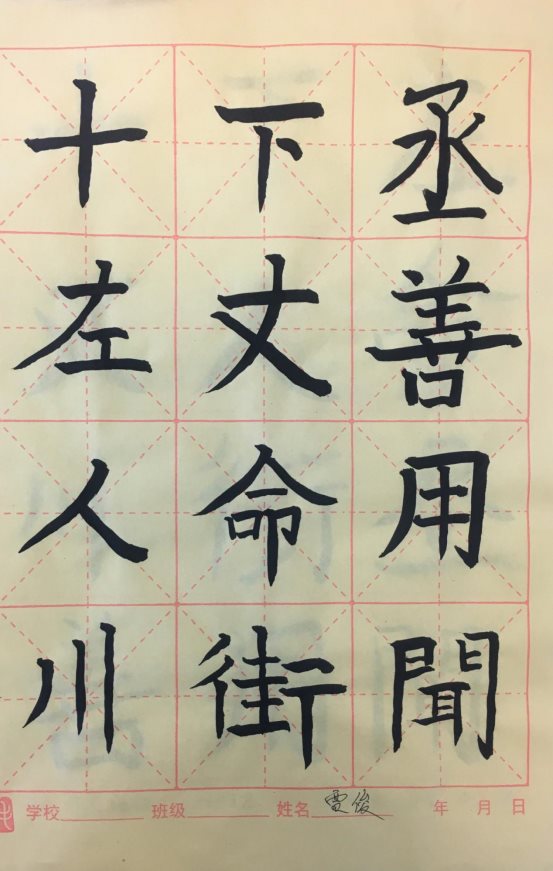 丞善用聞
下丈命街
十左人川
学校 班级 姓名 雷俊 年 月 日